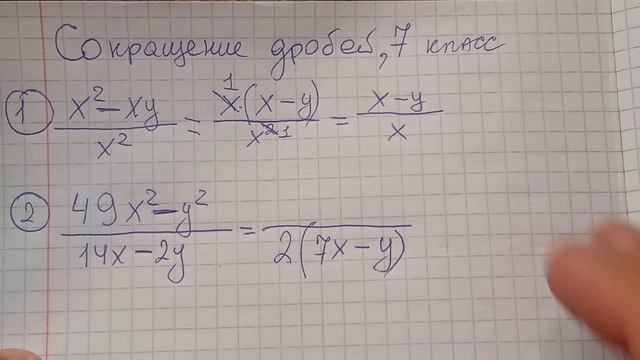 Сокращение дробей, 7 класс
① (x² - xy)/x² = (x̶¹·(x - y))/x^(2̶ 1) = (x - y)/x
② (49x² - y²)/(14x - 2y) = /(2(7x - y))